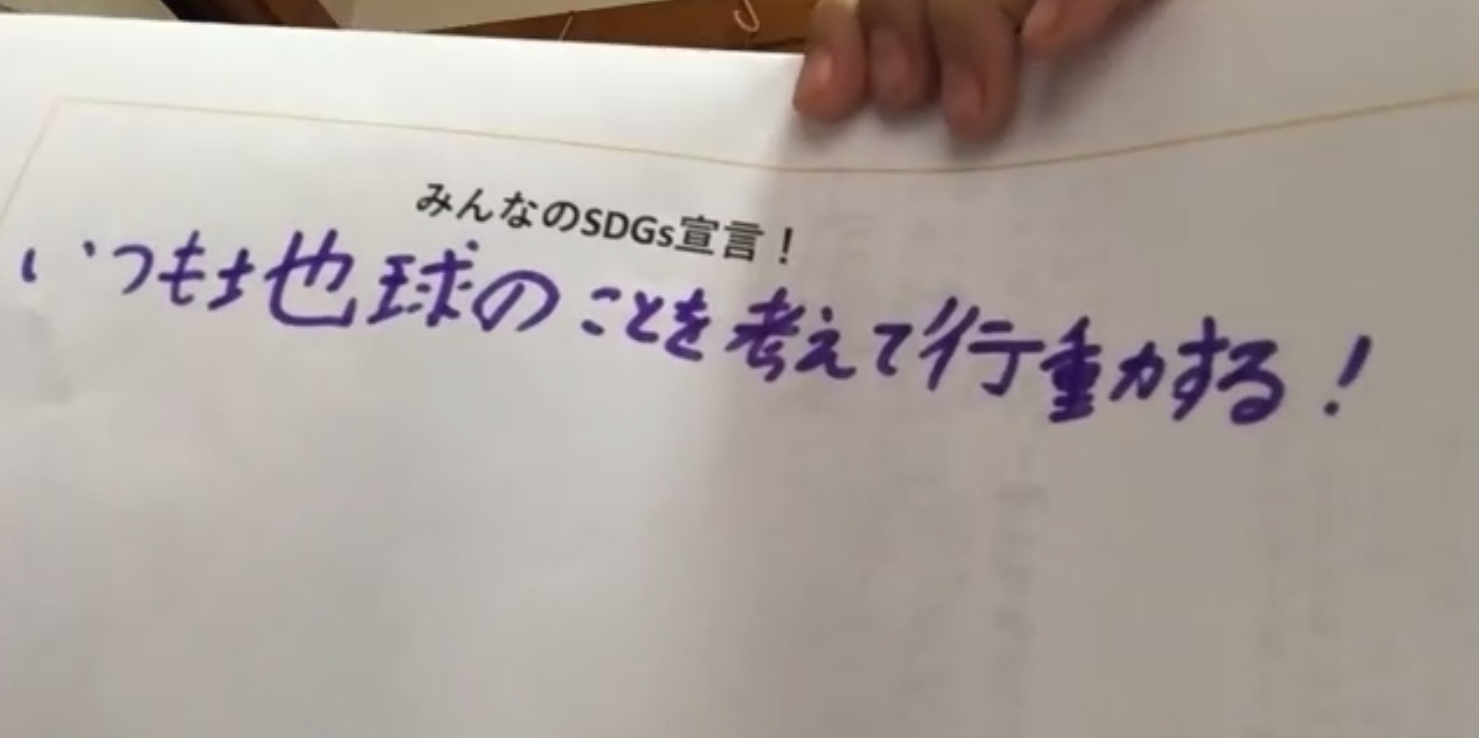 みんなのSDGs宣言！
いつも地球のことを考えて行動する！